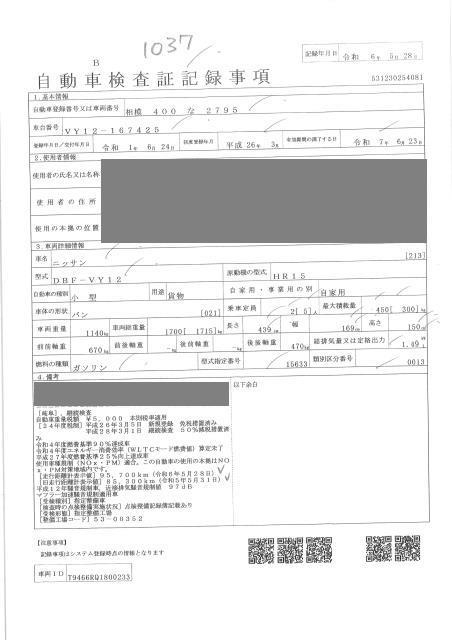 1037
B
記録年月日 令和 6年 5月 28日
自動車検査証記録事項
531230254081
1.基本情報
自動車登録番号又は車両番号 相模 400 な 2795
車台番号 VY12-167425
登録年月日/交付年月日 令和 1年 6月 24日 初度登録年月 平成 26年 3月 有効期間の満了する日 令和 7年 6月 23日
2.使用者情報
使用者の氏名又は名称
使用者の住所
使用の本拠の位置
3.車両詳細情報
車名 ニッサン [213]
型式 DBF-VY12 原動機の型式 HR15
自動車の種別 小型 用途 貨物 自家用・事業用の別 自家用
車体の形状 バン [021] 乗車定員 2[ 5]人 最大積載量 450[ 300]kg
車両重量 1140kg 車両総重量 1700[ 1715]kg 長さ 439cm 幅 169cm 高さ 150cm
前前軸重 670kg 前後軸重 -kg 後前軸重 -kg 後後軸重 470kg 総排気量又は定格出力 1.49L
燃料の種類 ガソリン 型式指定番号 15633 類別区分番号 0013
4.備考
以下余白
[岐阜],継続検査
自動車重量税額 ¥5,000 本則税率適用
[24年度税制]平成26年3月5日 新規登録 免税措置済み
平成28年3月1日 継続検査 50%減税措置済
み
令和4年度燃費基準90%達成車
令和4年度エネルギー消費効率(WLTCモード燃費値)算定未了
平成27年度燃費基準25%向上達成車
使用車種規制(NOx・PM)適合,この自動車の使用の本拠はNO
x・PM対策地域内です。
[走行距離計表示値]95,700km(令和6年5月28日)
[旧走行距離計表示値]85,300km(令和5年5月31日)
平成12年騒音規制車,近接排気騒音規制値 97dB
マフラー加速騒音規制適用車
[受検種別]指定整備車
[検査時の点検整備実施状況]点検整備記録簿記載あり
[受検形態]指定整備工場
[整備工場コード]53-00352
[注意事項]
記録事項はシステム登録時点の情報となります
車両ID T9466RQ1800233